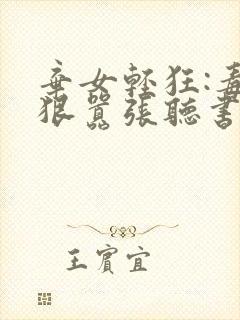 棄女輕狂:毒
狠囂張聽書
王賓宜